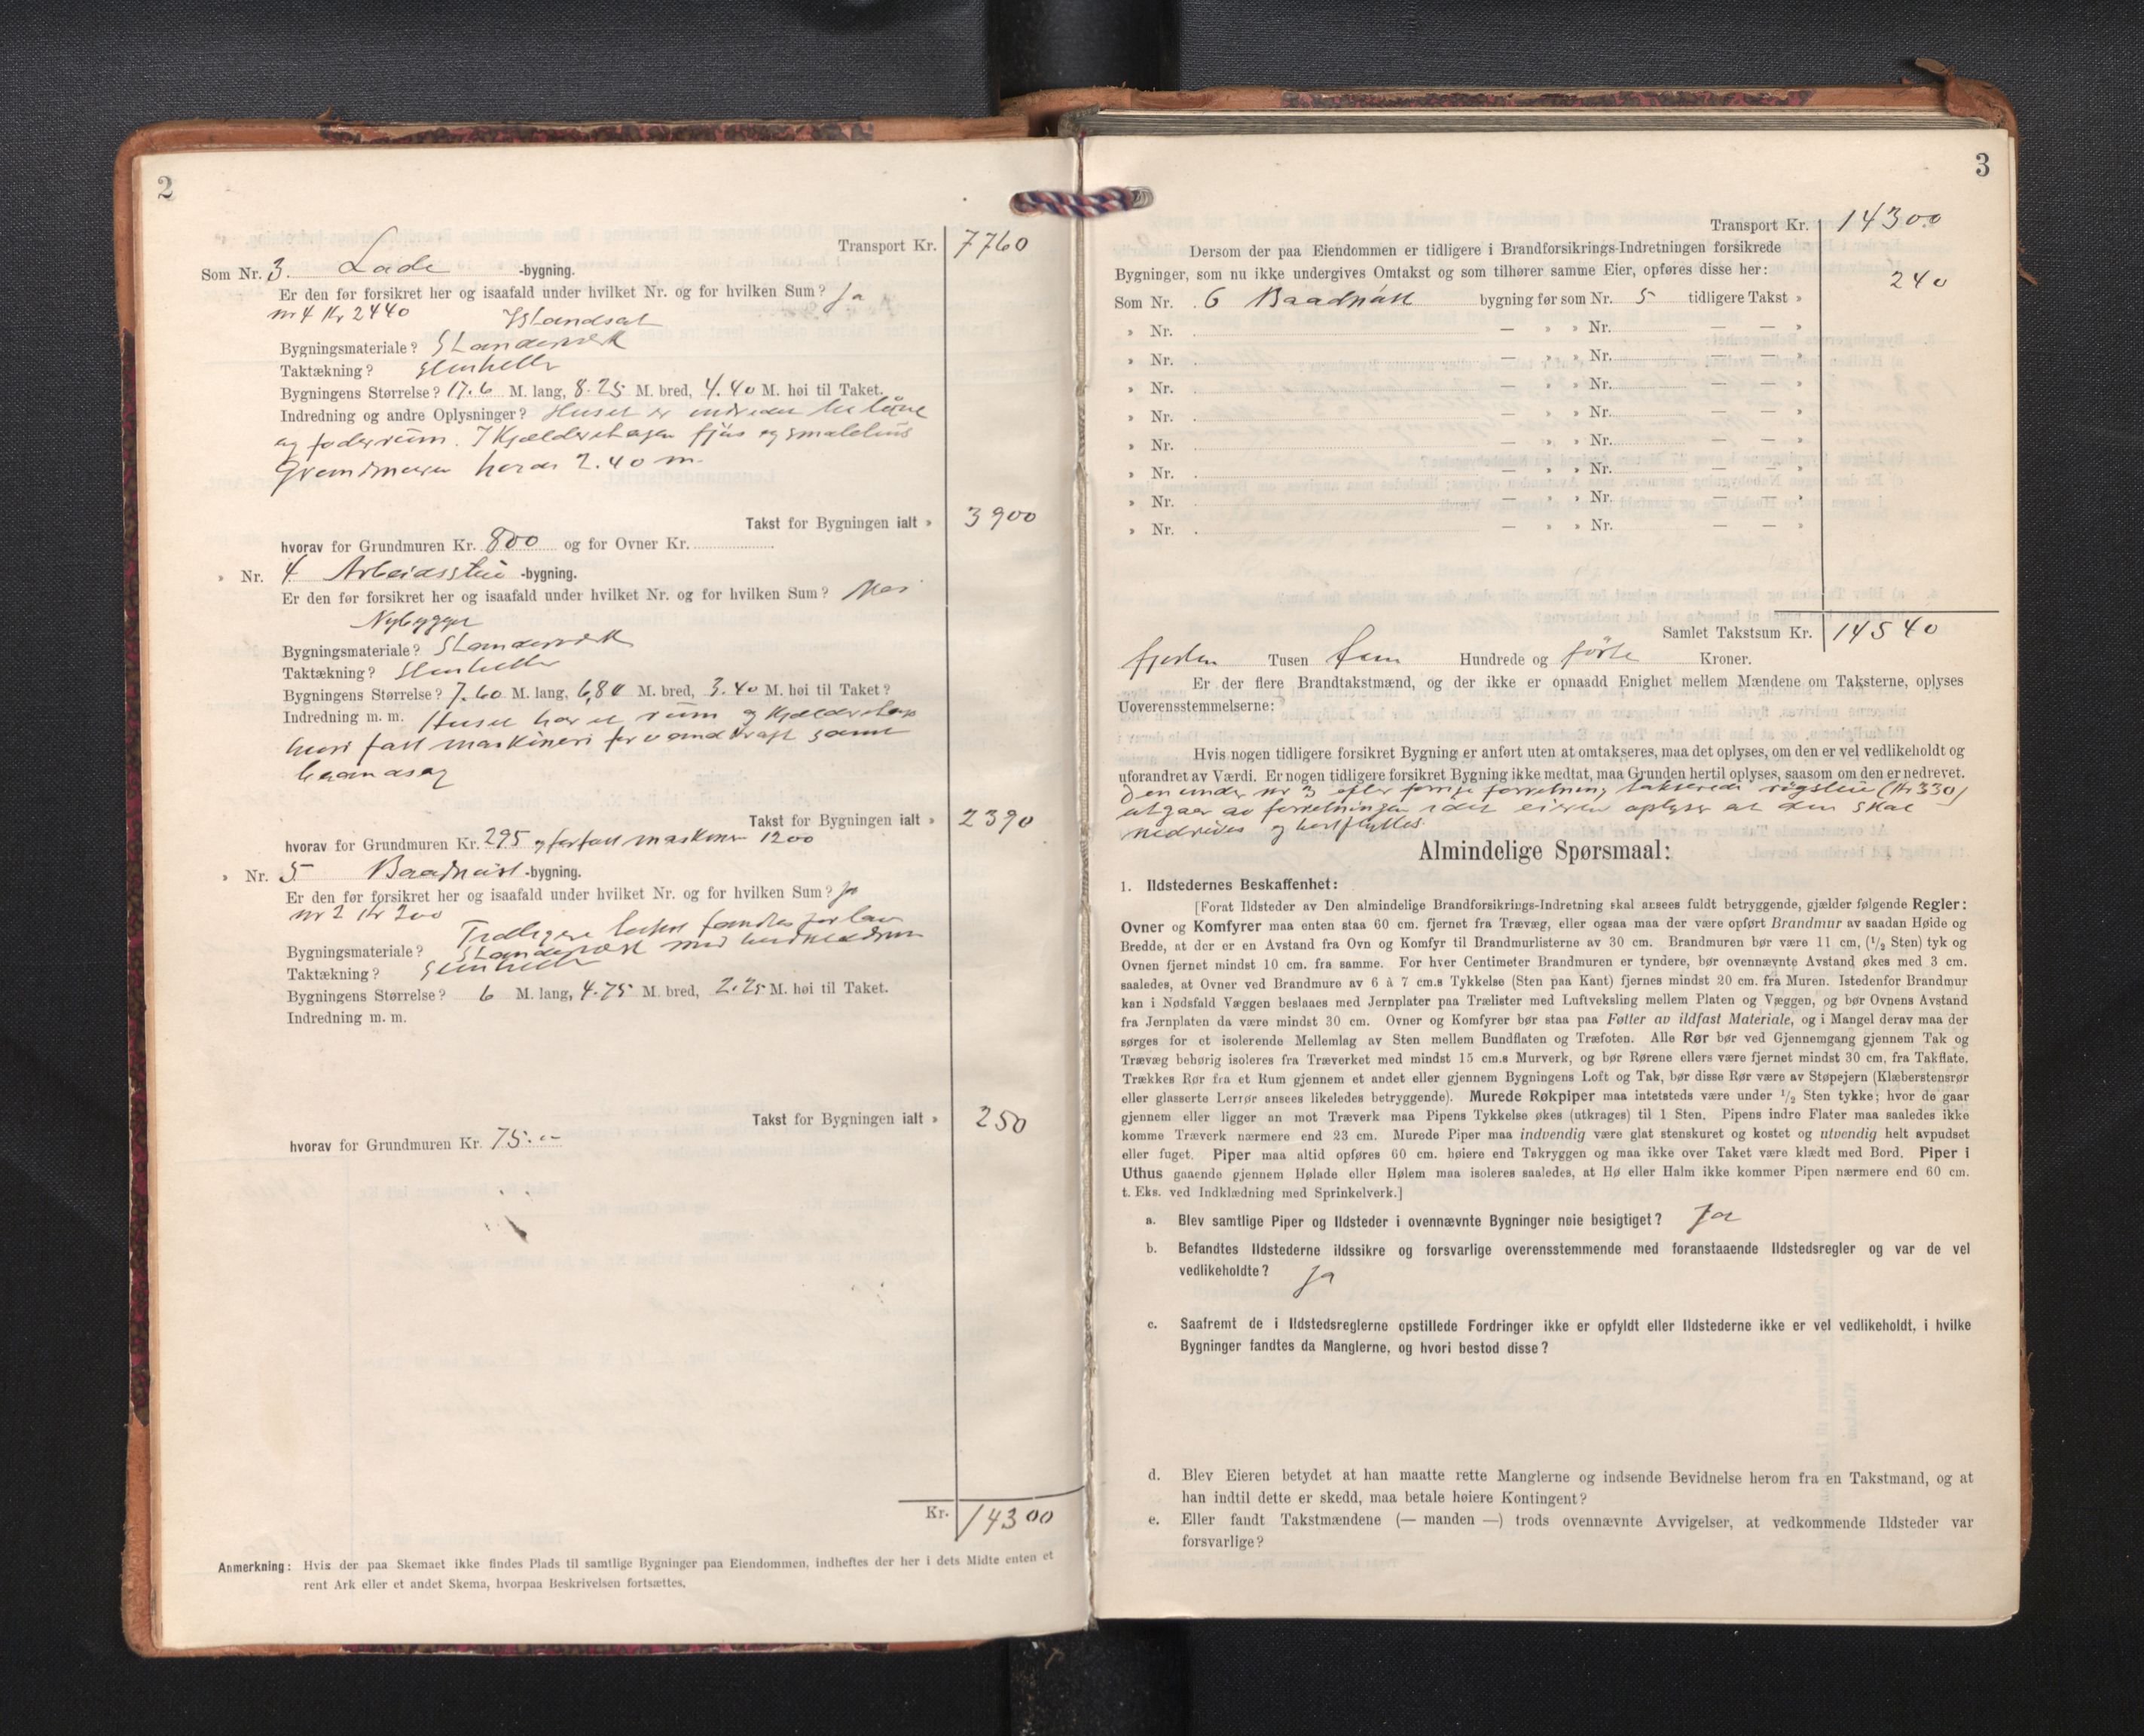 2
Transport Kr. 7760
Som Nr. 3. Lade -bygning.
Er den før forsikret her og isaafald under hvilket Nr. og for hvilken Sum? Ja
nr 4 Kr 2440
Istandsat
Bygningsmateriale? Standerverk
Taktækning? Stenheller
Bygningens Størrelse? 17.6 M. lang, 8.25 M. bred, 4.40 M. høi til Taket.
Indredning og andre Oplysninger? Huset er indredet til låve
og foderrum. I Kjælderetagen fjøs og smalehus
Grundmuren høide 2.40 m.
Takst for Bygningen ialt » 3900
hvorav for Grundmuren Kr. 800 og for Ovner Kr.
» Nr. 4 Arbeidsstue -bygning.
Er den før forsikret her og isaafald under hvilket Nr. og for hvilken Sum? Nei
Nybygget
Bygningsmateriale? Standerverk
Taktækning? Stenheller
Bygningens Størrelse? 7.60 M. lang, 6,80 M. bred, 3.40 M. høi til Taket?
Indredning m. m. Huset har et rum og Kjælderetage
hvori fast maskineri for vandkraft samt
baandsag
Takst for Bygningen ialt » 2390
hvorav for Grundmuren Kr. 295 og for fast maskineri 1200
» Nr. 5 Baadnøst -bygning.
Er den før forsikret her og isaafald under hvilket Nr. og for hvilken Sum? Ja
nr 2 Kr 200
Tidligere takst fandtes for lav
Bygningsmateriale? Standerverk med bordklædning
Taktækning? Stenheller
Bygningens Størrelse? 6 M. lang, 4.75 M. bred, 2.25 M. høi til Taket.
Indredning m. m.
Takst for Bygningen ialt » 250
hvorav for Grundmuren Kr. 75.--
Kr. 14300
Anmerkning: Hvis der paa Skemaet ikke findes Plads til samtlige Bygninger paa Eiendommen, indheftes der her i dets Midte enten et
rent Ark eller et andet Skema, hvorpaa Beskrivelsen fortsættes.
3
Transport Kr. 14300
Dersom der paa Eiendommen er tidligere i Brandforsikrings-Indretningen forsikrede
Bygninger, som nu ikke undergives Omtakst og som tilhører samme Eier, opføres disse her:
Som Nr. 6 Baadnøst bygning før som Nr. 5 tidligere Takst » 240
» Nr. — » » Nr. — — »
» Nr. — » » Nr. — — »
» Nr. — » » Nr. — — »
» Nr. — » » Nr. — — »
» Nr. — » » Nr. — — »
» Nr. — » » Nr. — — »
» Nr. — » » Nr. — — »
» Nr. — » » Nr. — — »
Samlet Takstsum Kr. 14540
fjorten Tusen fem Hundrede og førti Kroner.
Er der flere Brandtakstmænd, og der ikke er opnaadd Enighet mellem Mændene om Taksterne, oplyses
Uoverensstemmelserne:
Hvis nogen tidligere forsikret Bygning er anført uten at omtakseres, maa det oplyses, om den er vel vedlikeholdt og
uforandret av Værdi. Er nogen tidligere forsikret Bygning ikke medtat, maa Grunden hertil oplyses, saasom om den er nedrevet.
Den under nr 3 efter forrige forretning takserede røgstue (Kr 330)
utgaar av forretningen idet eieren oplyser at den skal
nedrives og bortflyttes.
Almindelige Spørsmaal:
1. Ildstedernes Beskaffenhet:
[Forat Ildsteder av Den almindelige Brandforsikrings-Indretning skal ansees fuldt betryggende, gjælder følgende Regler:
Ovner og Komfyrer maa enten staa 60 cm. fjernet fra Trævæg, eller ogsaa maa der være opført Brandmur av saadan Høide og
Bredde, at der er en Avstand fra Ovn og Komfyr til Brandmurlisterne av 30 cm. Brandmuren bør være 11 cm, (1/2 Sten) tyk og
Ovnen fjernet mindst 10 cm. fra samme. For hver Centimeter Brandmuren er tyndere, bør ovennævnte Avstand økes med 3 cm.
saaledes, at Ovner ved Brandmure av 6 à 7 cm.s Tykkelse (Sten paa Kant) fjernes mindst 20 cm. fra Muren. Istedenfor Brandmur
kan i Nødsfald Væggen beslaaes med Jernplater paa Trælister med Luftveksling mellem Platen og Væggen, og bør Ovnens Avstand
fra Jernplaten da være mindst 30 cm. Ovner og Komfyrer bør staa paa Føtter av ildfast Materiale, og i Mangel derav maa der
sørges for et isolerende Mellemlag av Sten mellem Bundflaten og Træfoten. Alle Rør bør ved Gjennemgang gjennem Tak og
Trævæg behørig isoleres fra Træverket med mindst 15 cm.s Murverk, og bør Rørene ellers være fjernet mindst 30 cm. fra Takflate.
Trækkes Rør fra et Rum gjennem et andet eller gjennem Bygningens Loft og Tak, bør disse Rør være av Støpejern (Klæberstensrør
eller glasserte Lerrør ansees likeledes betryggende). Murede Røkpiper maa intetsteds være under 1/2 Sten tykke; hvor de gaar
gjennem eller ligger an mot Træverk maa Pipens Tykkelse økes (utkrages) til 1 Sten. Pipens indre Flater maa saaledes ikke
komme Træverk nærmere end 23 cm. Murede Piper maa indvendig være glat stenskuret og kostet og utvendig helt avpudset
eller fuget. Piper maa altid opføres 60 cm. høiere end Takryggen og maa ikke over Taket være klædt med Bord. Piper i
Uthus gaaende gjennem Hølade eller Hølem maa isoleres saaledes, at Hø eller Halm ikke kommer Pipen nærmere end 60 cm.
t. Eks. ved Indklædning med Sprinkelverk.]
a. Blev samtlige Piper og Ildsteder i ovennævnte Bygninger nøie besigtiget? Ja
b. Befandtes Ildstederne ildssikre og forsvarlige overensstemmende med foranstaaende Ildstedsregler og var de vel
vedlikeholdte? Ja
c. Saafremt de i Ildstedsreglerne opstillede Fordringer ikke er opfyldt eller Ildstederne ikke er vel vedlikeholdt, i hvilke
Bygninger fandtes da Manglerne, og hvori bestod disse?
d. Blev Eieren betydet at han maatte rette Manglerne og indsende Bevidnelse herom fra en Takstmand, og at
han indtil dette er skedd, maa betale høiere Kontingent?
e. Eller fandt Takstmændene (— manden —) trods ovennævnte Avvigelser, at vedkommende Ildsteder var
forsvarlige?